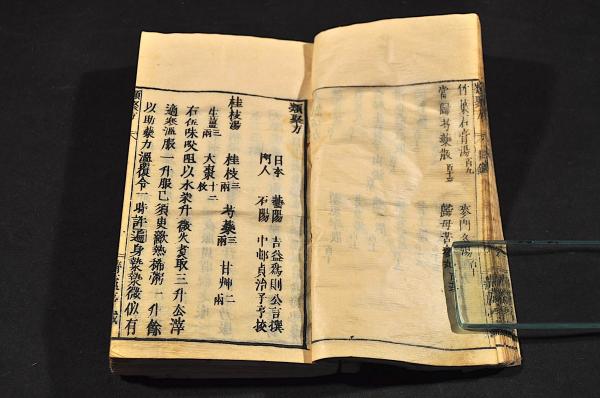 類聚方
竹葉石膏湯 百九 麥門冬湯
當歸芍藥散 百十三 歸母苦
類聚方
日本 藝陽 吉益為則公言撰
門人 中邨貞治子亨校
桂枝湯 桂枝三兩 芍藥三兩 甘艸二兩
生薑三兩 大棗十二枚
右五味㕮咀以水柒升微火煑取三升去滓
適寒溫服一升服已須臾歠熱稀粥一升餘
以助藥力溫覆令一時許遍身漐漐微似有
類聚方